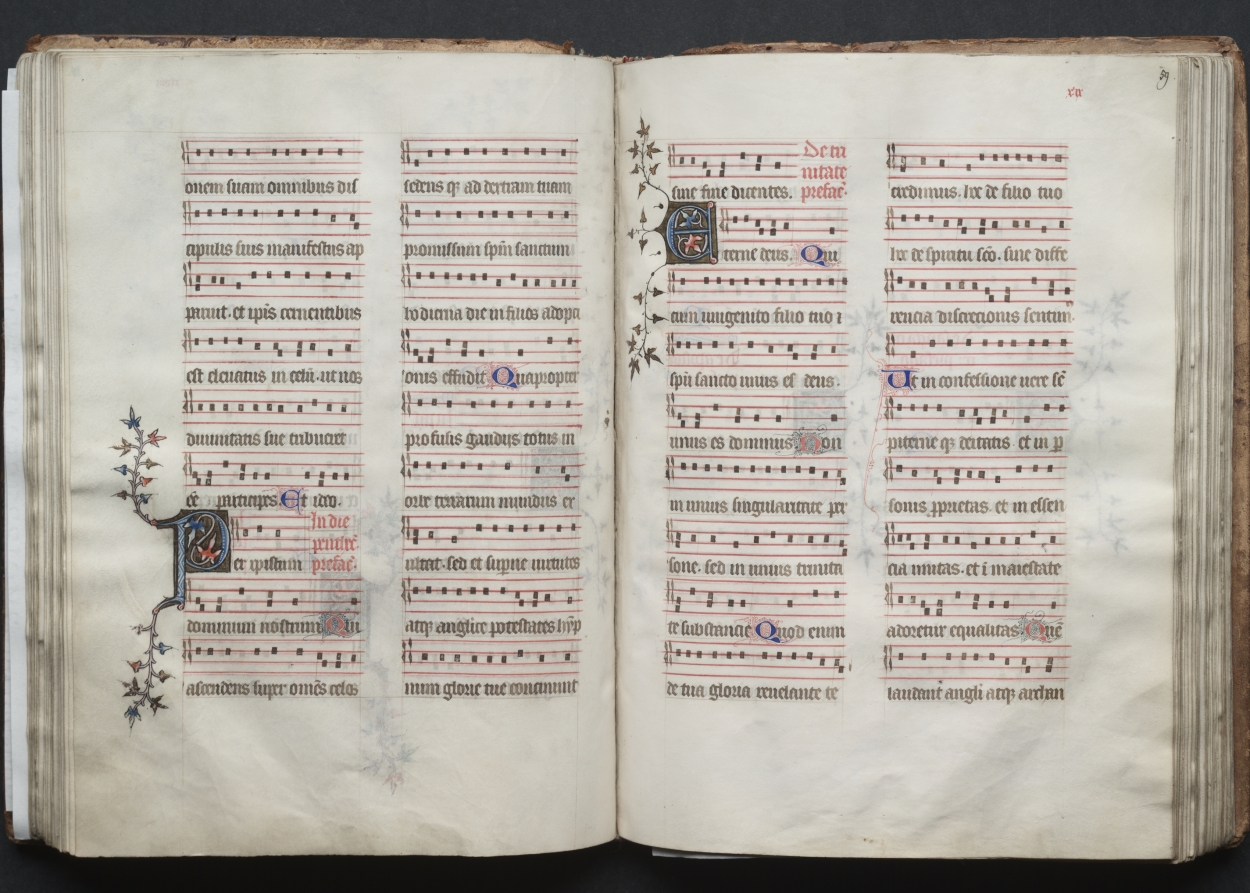 onem suam omnibus dis
cipulis suis manifestus ap
paruit. et ipis cernentibus
est eleuatus in celū. ut nos
diuinitatis sue tribueret
ēē participes. Et ideo.
In die
penthec̄.
prefac̄.
Per ipistum
dominum nostrum Qui
ascendens super omēs celos
sedens qꝫ ad dexteram tuam
promissum sp̄m sanctum
hodierna die in filios adopci
onis effudit Quapropter
profusis gaudijs totus in
orbe terrarum mundus ex
ultat. sed et superne uirtutes
atqꝫ anglice potestates hyp
num glorie tue concinunt
59
xix
De tri
nitate
prefac̄.
sine fine dicentes.
Eterne deus. Qui
cum unigenito filio tuo ⁊
sp̄u sancto unus es deus.
unus es dominus Non
in unius singularitate per
sone. sed in unius trinita
te substancie Quod enim
de tua gloria reuelante te
credimus. hoc de filio tuo
hoc de spiritu sc̄o. sine diffe
rencia discrecionis sentim
Ut in confessione uere sē
piterne qꝫ deitatis. et in ꝑ
sonis ꝓprietas. et in essen
cia unitas. et ī maiestate
adoretur equalitas Quē
laudant angli atqꝫ archan